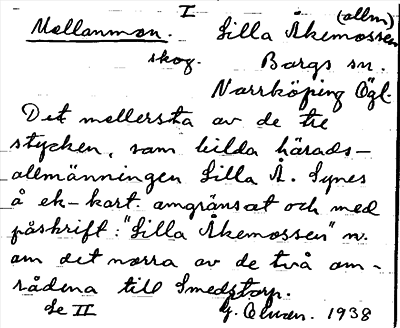 I (allm)
Mellanmon. Lilla Åkemossen
skog. Borgs sn.
Norrköping Ögl.
Det mellersta av de tre
stycken, som bilda härads-
allmänningen Lilla Å. Synes
å ek-kart. omgränsat och med
påskrift: "Lilla Åkemossen" n.
om det norra av de två om-
rådena till Smedstorp.
Se II G. 1938